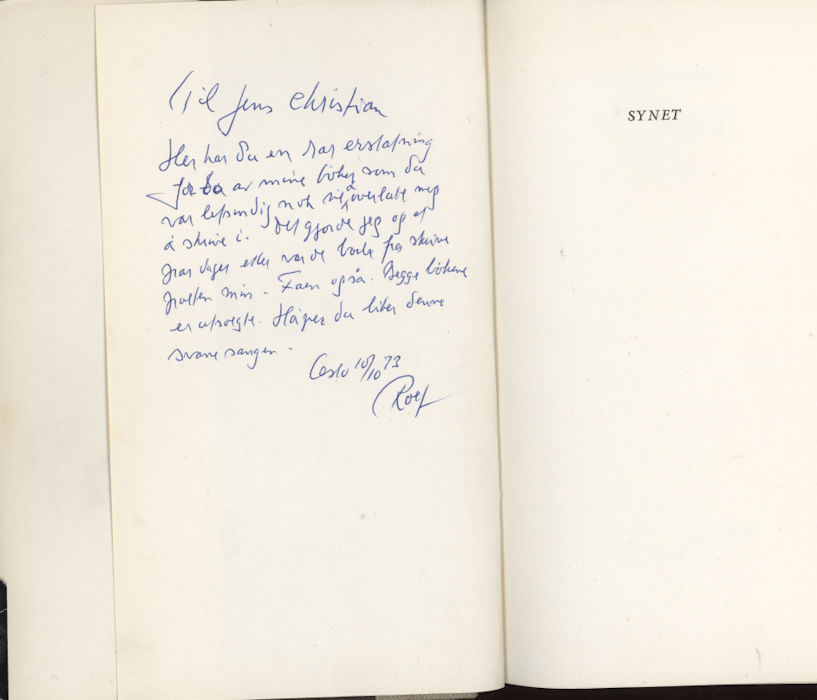 Til Jens Christian
Her har du en rar erstatning
for to av mine bøker som du
var letsindig nok til å overlate meg
å skrive i. Det gjorde jeg og et
par dager etter var de borte fra skrive
pulten min. Faen også. Begge bøkene
er utsolgte. Håper du liker denne
svanesangen.
Oslo 10/10 73
Rolf
SYNET